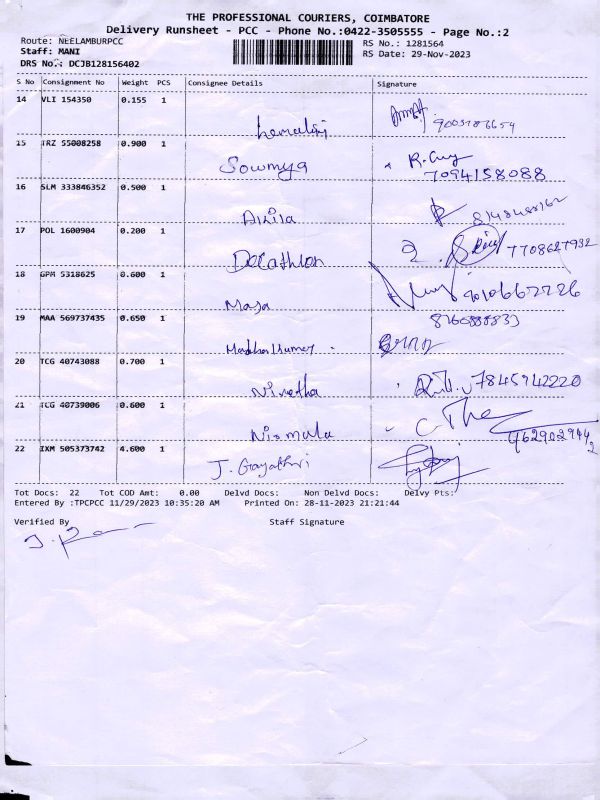 THE PROFESSIONAL COURIERS, COIMBATORE
Delivery Runsheet - PCC - Phone No.:0422-3505555 - Page No.:2
Route: NEELAMBURPCC
RS No.: 1281564
Staff: MANI
RS Date: 29-Nov-2023
DRS No.: DCJB128156402
S No Consignment No Weight PCS Consignee Details Signature
14 VLI 154350 0.155 1
15 TRZ 55008258 0.900 1 Sowmya 7094158088
16 SLM 333846352 0.500 1
17 POL 1600904 0.200 1 Decathlon 7708627932
18 GPM 5318625 0.600 1
19 MAA 569737435 0.650 1
20 TCG 40743088 0.700 1 Nivetha 7845942220
21 TCG 40739006 0.600 1 Nirmala
22 IXM 505373742 4.600 1 J. Gayathri
Tot Docs: 22 Tot COD Amt: 0.00 Delvd Docs: Non Delvd Docs: Delvy Pts:
Entered By :TPCPCC 11/29/2023 10:35:20 AM Printed On: 28-11-2023 21:21:44
Verified By Staff Signature